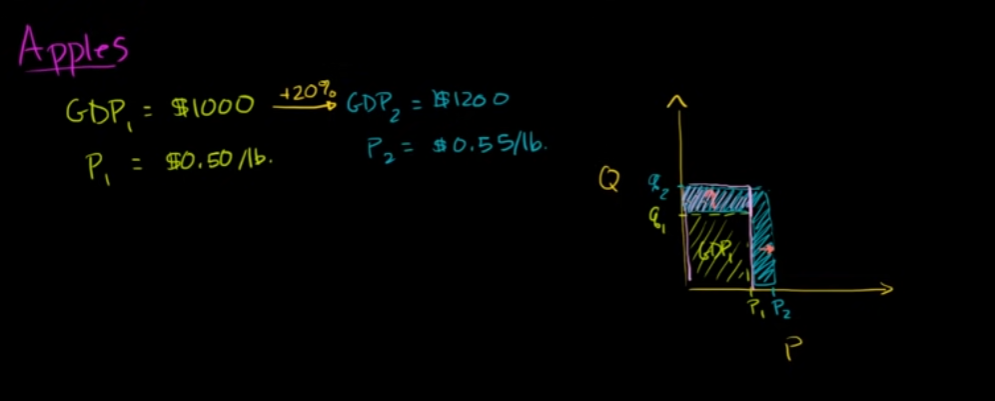 Apples
GDP₁ = $1000 +20% GDP₂ = $1200
P₁ = $0.50/lb. P₂ = $0.55/lb.
Q
q₂
q₁
GDP₁
P₁ P₂
P